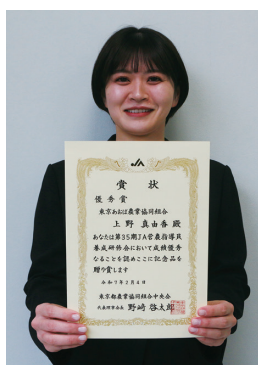 JA
賞状
優秀賞
東京あおば農業協同組合
上野 真由香 殿
あなたは第35期JA営農指導員
養成研修会において成績優秀
なることを認めここに記念品を
贈り賞します
令和7年2月4日
東京都農業協同組合中央会
代表理事会長 野﨑 啓太郎